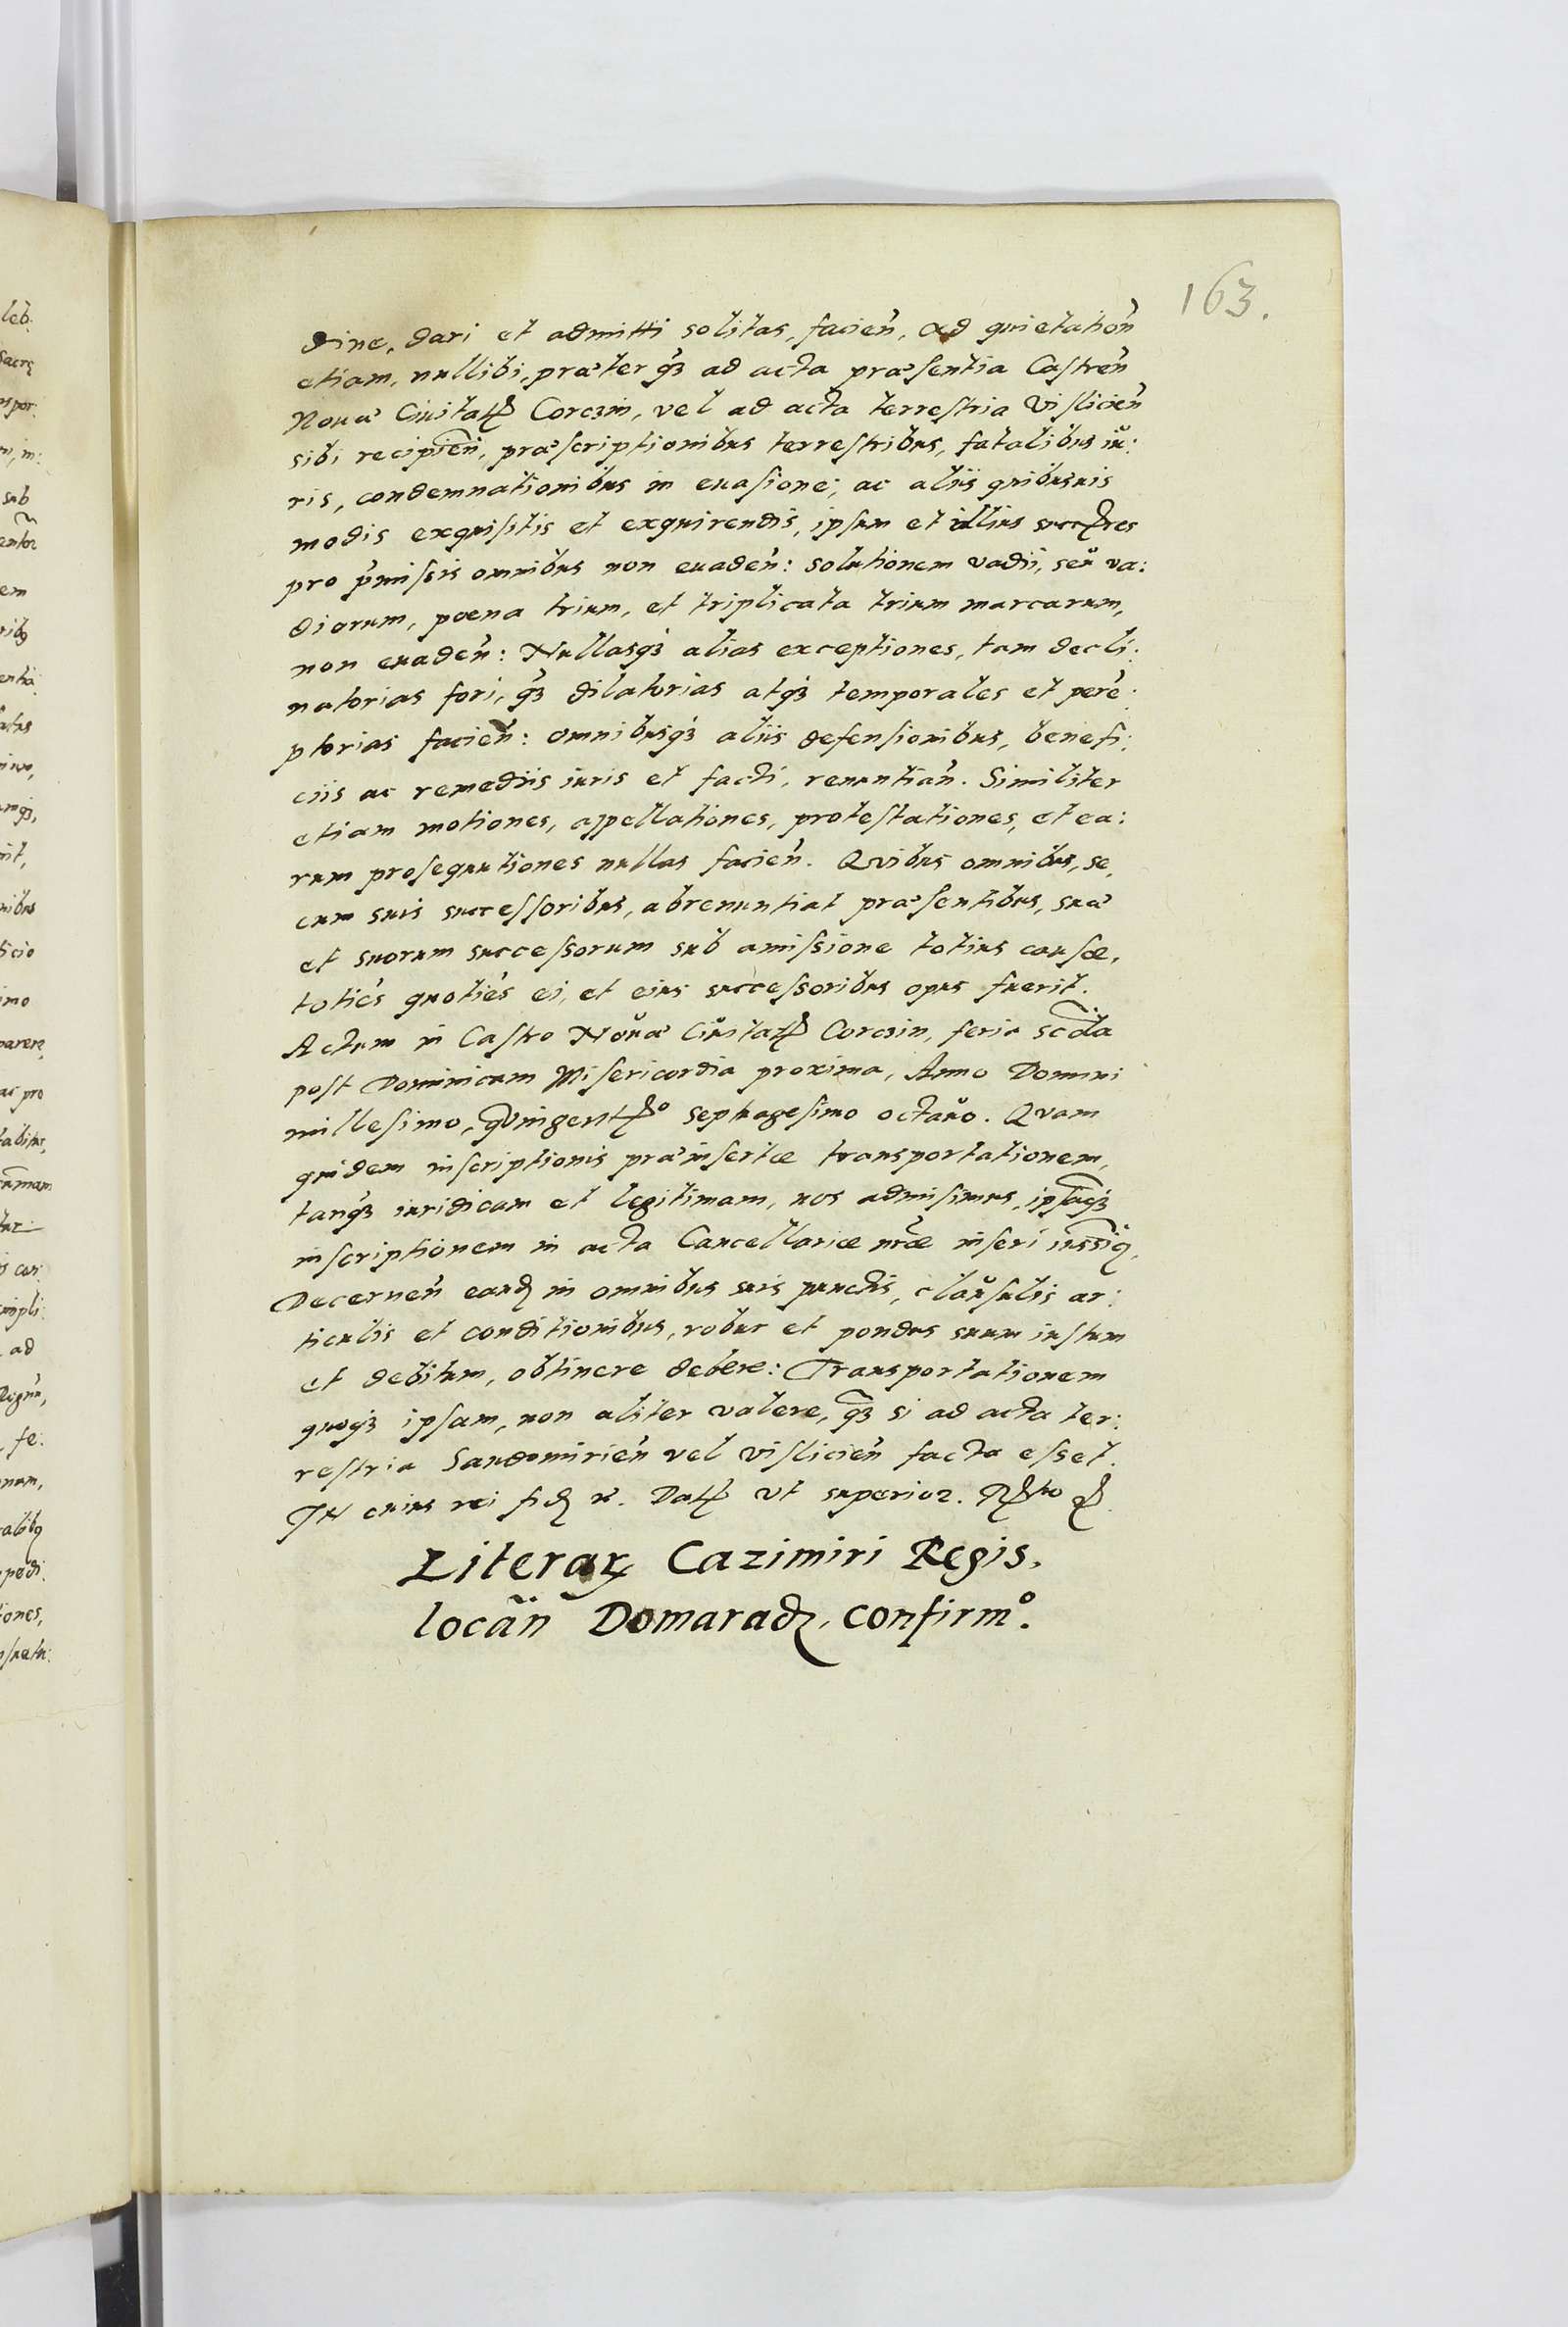 163.
dine, dari et admitti solitas, facien̄, ad quietation̄
etiam, nullibi, præter q̃ꝫ ad acta præsentia Castren̄
Nouæ Ciuitatꝭ Corczin, vel ad acta terrestria Vislicien̄
sibi recipien̄, præscriptionibus terrestribus, fatalibus iu:
ris, condemnationibus in euasione; ac aliis quibusuis
modis exquisitis et exquirendis, ipsum et illius succꝭres
pro p̄missis omnibus non euaden̄: solutionem vadii, seu va:
diorum, poena trium, et triplicata trium marcarum,
non euaden̄: Nullasqꝫ alias exceptiones, tam decli:
natorias fori, q̃ꝫ dilatorias atqꝫ temporales et perē:
ptorias facien̄: omnibusqꝫ aliis defensionibus, benefi:
ciis ac remediis iuris et facti, renuntian̄. Similiter
etiam motiones, appellationes, protestationes, et ea:
rum prosequutiones nullas facien̄. Quibus omnibus, se,
cum suis successoribus, abrenuntiat præsentibus, sua
et suorum successorum sub amissione totius causæ,
toties quoties ei, et eius successoribus opus fuerit.
Actum in Castro Nouæ Ciuitatꝭ Corczin, feria scd̃a
post Dominicam Misericordia proxima, Anno Domini
millesimo, quingentꝭº septuagesimo octauo. Quam
quidem inscriptionis præinsertæ transportationem,
tanq̃ꝫ iuridicam et legitimam, nos admisimus, ipsāqꝫ
inscriptionem in acta Cancellariæ nr̃æ inseri iussimꝯ,
Decernen̄ eandꝫ in omnibus suis punctis, clausulis ar:
ticulis et conditionibus, robur et pondus suum iustum
et debitum, obtinere debere: Transportationem
quoqꝫ ipsam, non aliter valere, q̃ꝫ si ad acta ter:
restria Sandomirien̄ vel Vislicien̄ facta esset.
In cuius rei fidꝫ &. Datꝭ vt superior.
Literaꝝ Cazimiri Regis,
locan̄ Domaradꝫ, confirmº.